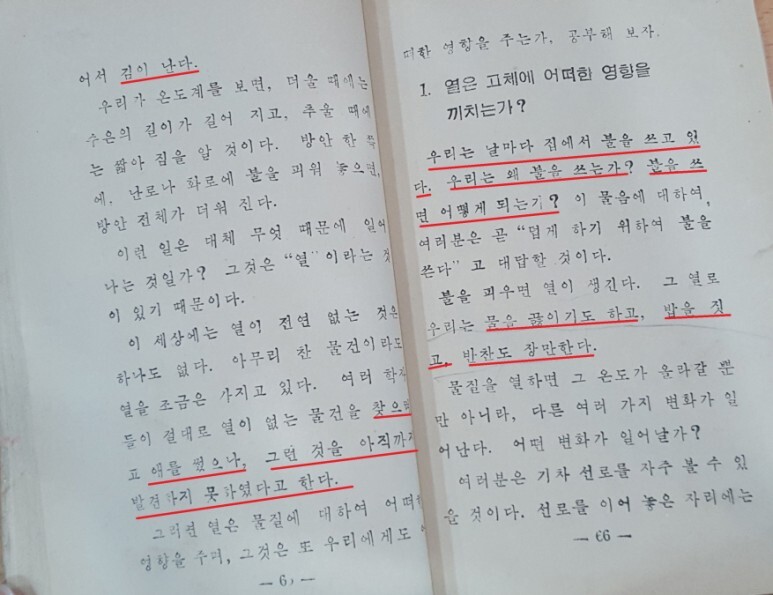 어서 김이 난다.
우리가 온도계를 보면, 더울 때에는
수은의 길이가 길어 지고, 추울 때에
는 짧아 짐을 알 것이다. 방안 한
에. 난로나 화로에 불을 피워 놓으면,
방안 전체가 더워 진다.
이런 일은 대체 무엇 때문에 일어
나는 것일가? 그것은 “열”이라는 것
이 있기 때문이다.
이 세상에는 열이 전연 없는 것은
하나도 없다. 아무리 찬 물건이라도
열을 조금은 가지고 있다. 여러
들이 절대로 열이 없는 물건을 찾으려
고 애를 썼으나, 그런 것을 아직까지
발견하지 못하였다고 한다.
그러면 열은 물질에 대하여 어떠한
영향을 주며, 그것은 또 우리에게도
— 6 —
떠한 영향을 주는가, 공부해 보자.
1. 열은 고체에 어떠한 영향을
끼치는가?
우리는 날마다 집에서 불을 쓰고 있
다. 우리는 왜 불을 쓰는가? 불을 쓰
면 어떻게 되는가? 이 물음에 대하여,
여러분은 곧 “덥게 하기 위하여 불을
쓴다”고 대답할 것이다.
불을 피우면 열이 생긴다. 그 열로
우리는 물을 끓이기도 하고, 밥을 짓
고, 반찬도 장만한다.
물질을 열하면 그 온도가 올라갈 뿐
만 아니라, 다른 여러 가지 변화가 일
어난다. 어떤 변화가 일어날가?
여러분은 기차 선로를 자주 볼 수 있
을 것이다. 선로를 이어 놓은 자리에는
— 66 —